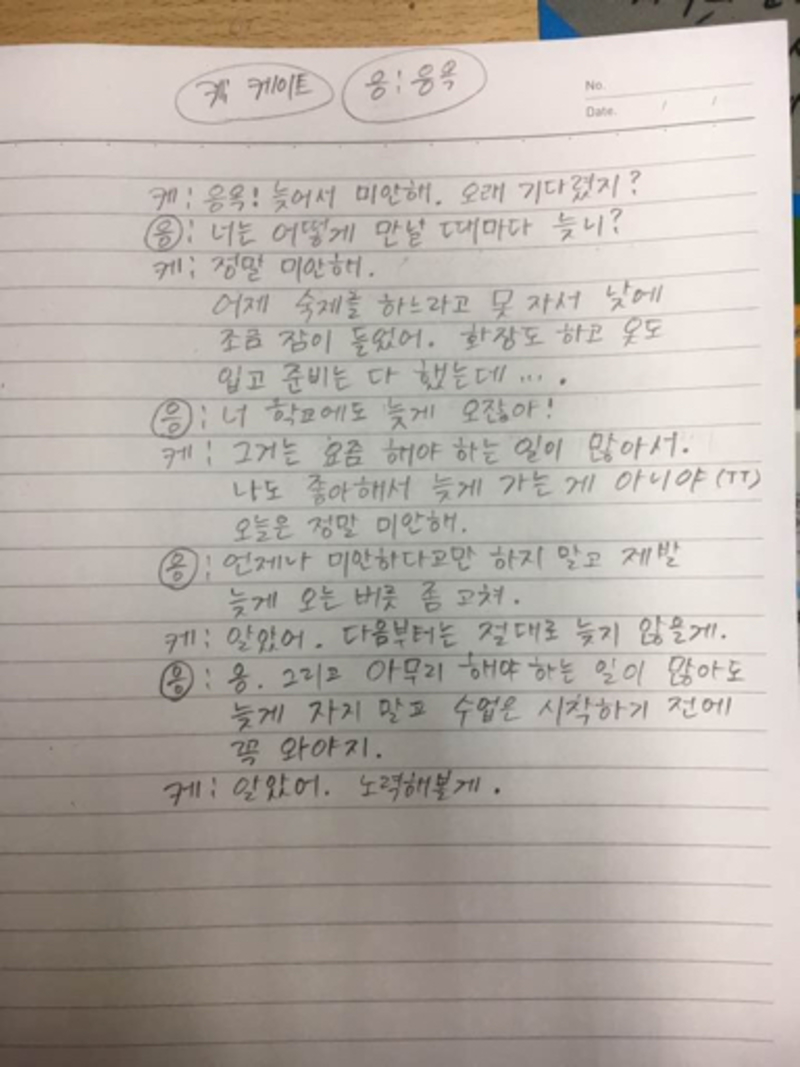 케 케이트 응: 응옥
No.
Date. / /
케: 응옥! 늦어서 미안해. 오래 기다렸지?
응: 너는 어떻게 만날 때마다 늦니?
케: 정말 미안해.
어제 숙제를 하느라고 못 자서 낮에
조금 잠이 들었어. 화장도 하고 옷도
입고 준비는 다 했는데....
응: 너 학교에도 늦게 오잖아!
케: 그거는 요즘 해야 하는 일이 많아서.
나도 좋아해서 늦게 가는 게 아니야 (TT)
오늘은 정말 미안해.
응: 언제나 미안하다고만 하지 말고 제발
늦게 오는 버릇 좀 고쳐.
케: 알았어. 다음부터는 절대로 늦지 않을게.
응: 응. 그리고 아무리 해야 하는 일이 많아도
늦게 자지 말고 수업은 시작하기 전에
꼭 와야지.
케: 알았어. 노력해볼게.